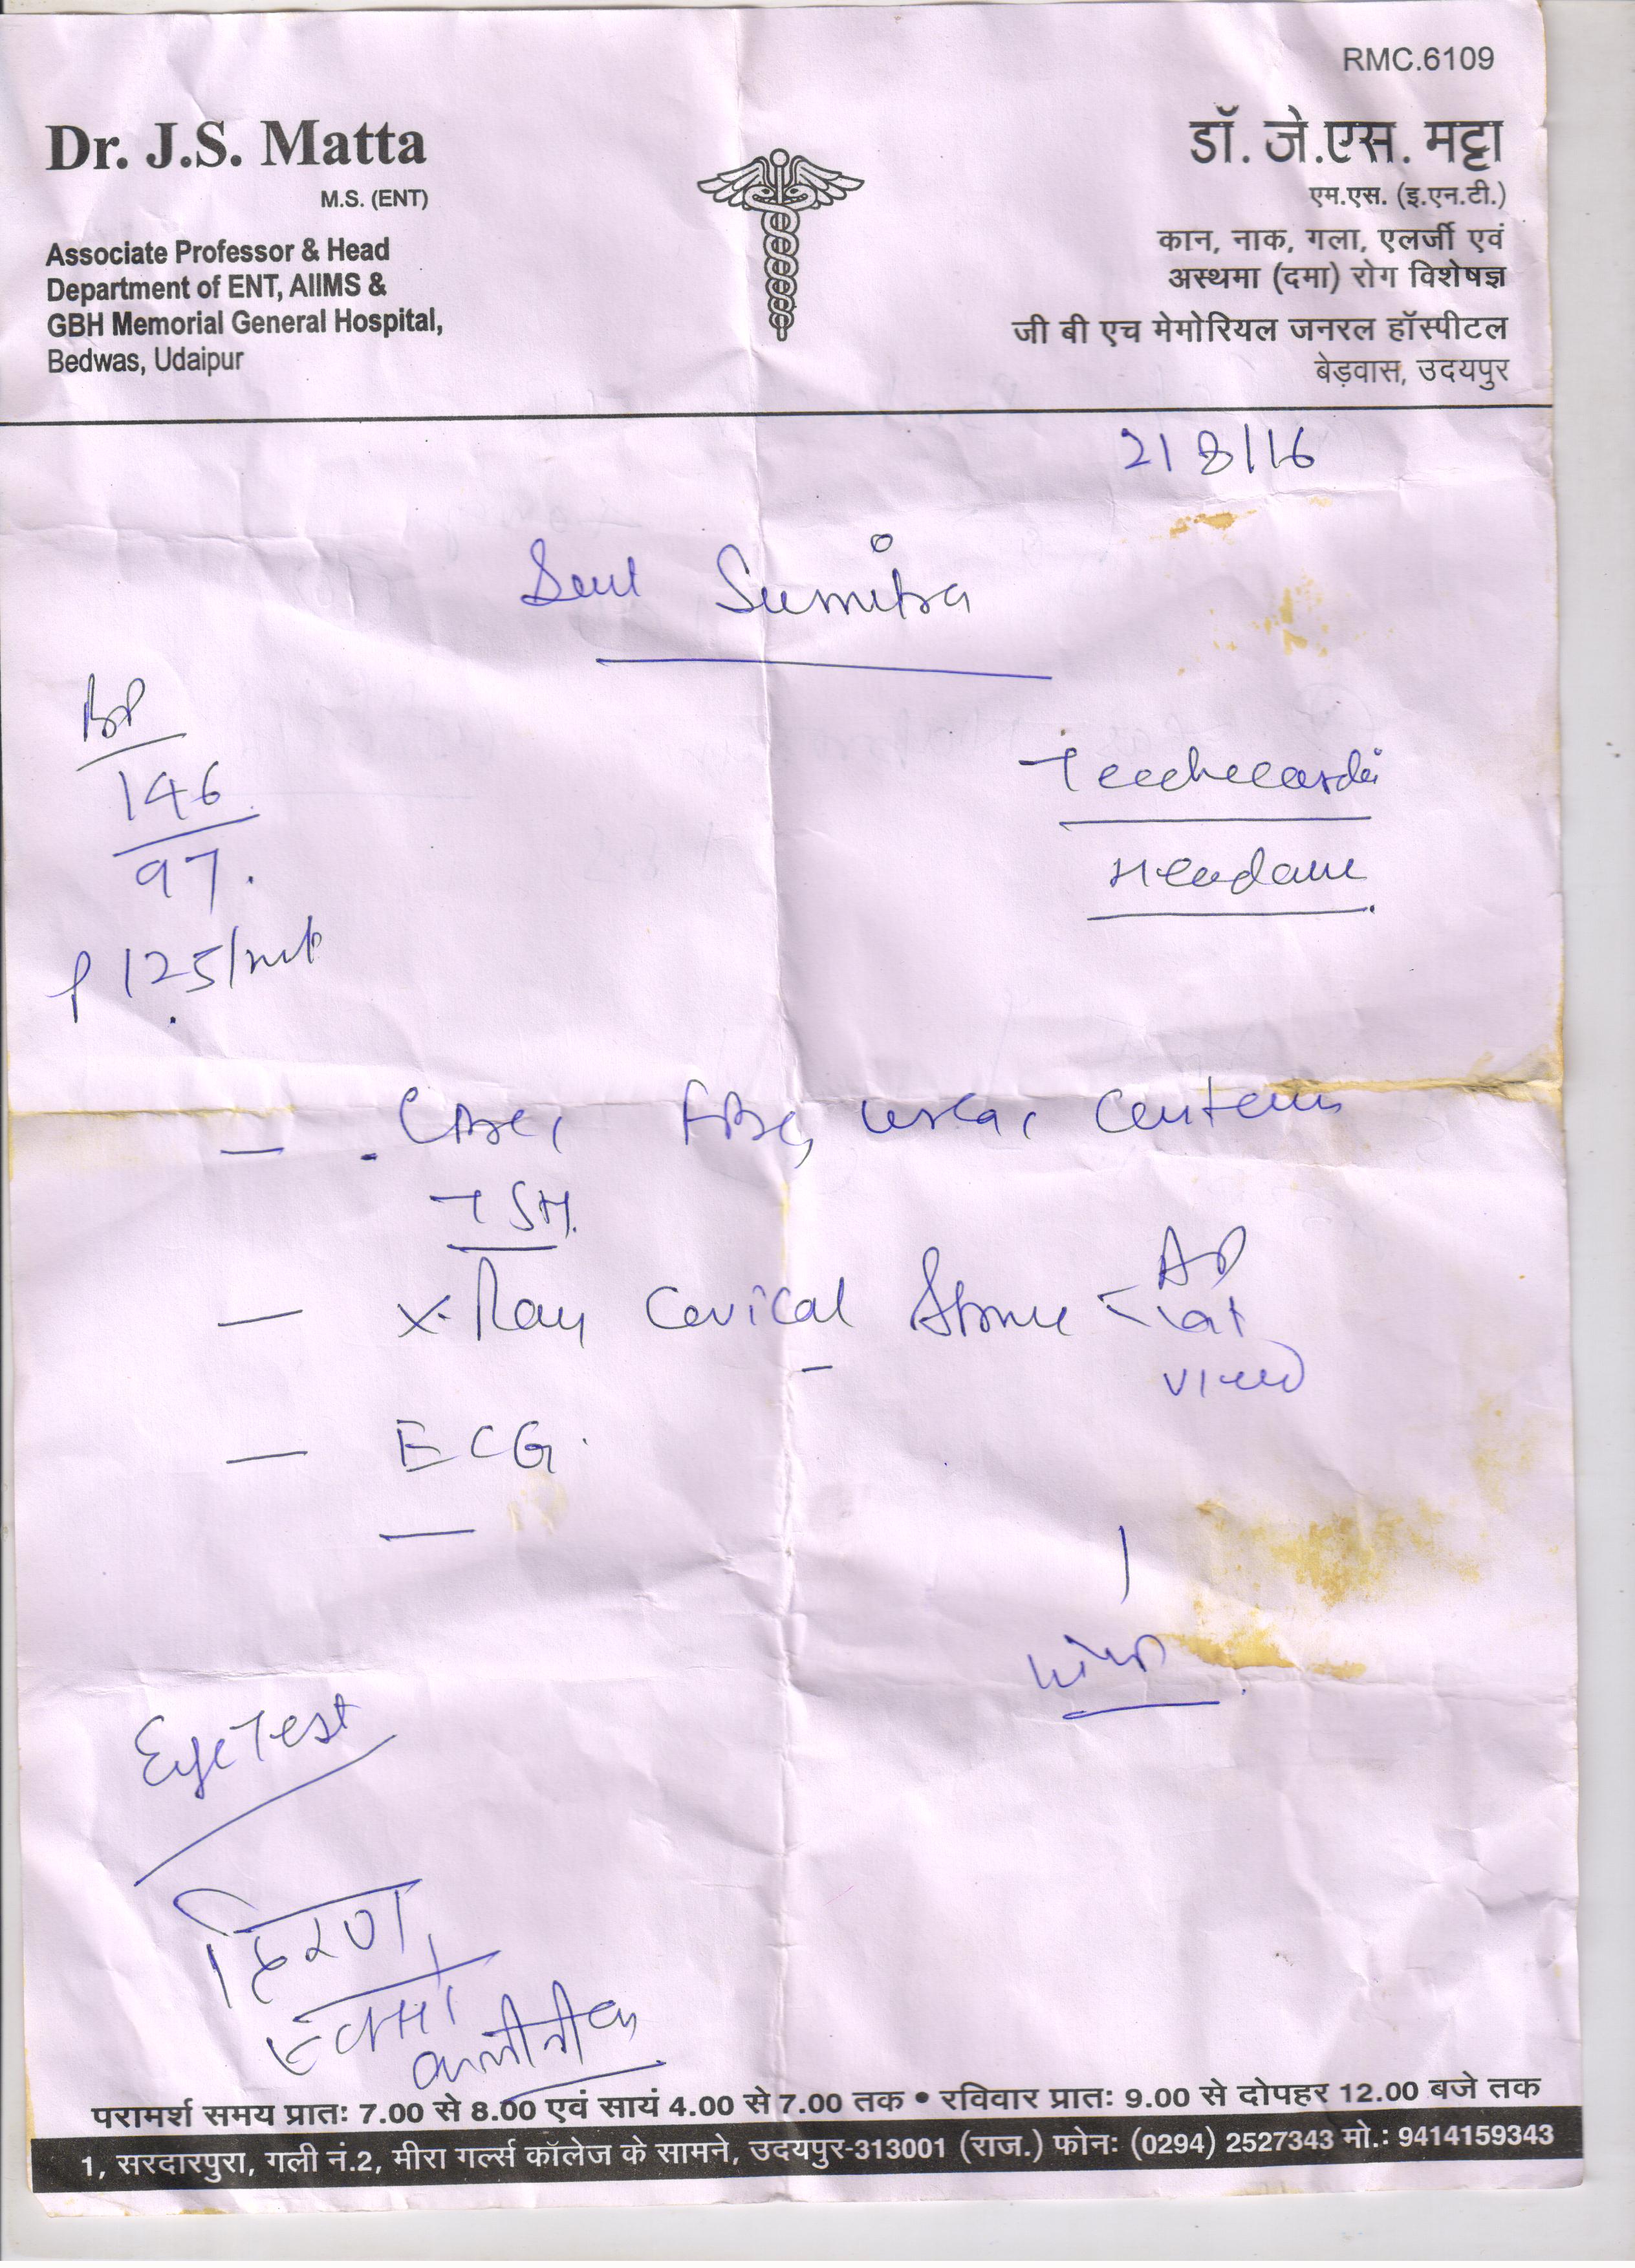 RMC.6109
Dr. J.S. Matta
M.S. (ENT)
Associate Professor & Head
Department of ENT, AIIMS &
GBH Memorial General Hospital,
Bedwas, Udaipur
डॉ. जे.एस. मट्टा
एम.एस. (इ.एन.टी.)
कान, नाक, गला, एलर्जी एवं
अस्थमा (दमा) रोग विशेषज्ञ
जी बी एच मेमोरियल जनरल हॉस्पीटल
बेड़वास, उदयपुर
21 8/16
Sumitra
BP
146
97.
P 125/mt
- CBC, FBS, urea,
TSH.
- X-Ray Cervical Spine - AP
Lat
view
- ECG.
Eye Test
हिरण
क्लीनीक
परामर्श समय प्रातः 7.00 से 8.00 एवं सायं 4.00 से 7.00 तक • रविवार प्रातः 9.00 से दोपहर 12.00 बजे तक
1, सरदारपुरा, गली नं.2, मीरा गर्ल्स कॉलेज के सामने, उदयपुर-313001 (राज.) फोनः (0294) 2527343 मो.: 9414159343